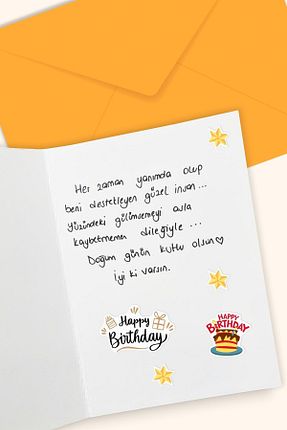 Her zaman yanımda olup
beni destekleyen güzel insan...
Yüzündeki gülümsemeyi asla
kaybetmemen dileğiyle ...
Doğum günün kutlu olsun♡
İyi ki varsın.
Happy
Birthday
HAPPY
BIRTHDAY